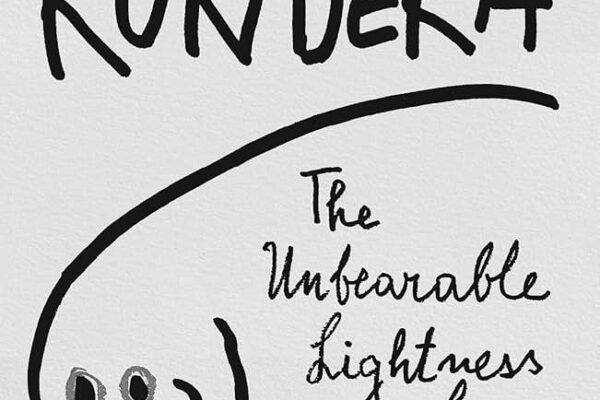 KUNDERA
The
Unbearable
Lightness